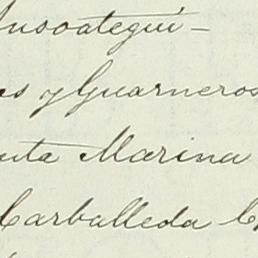 Ansoategui-
es y Guarneros
nta Marina
Carballeda